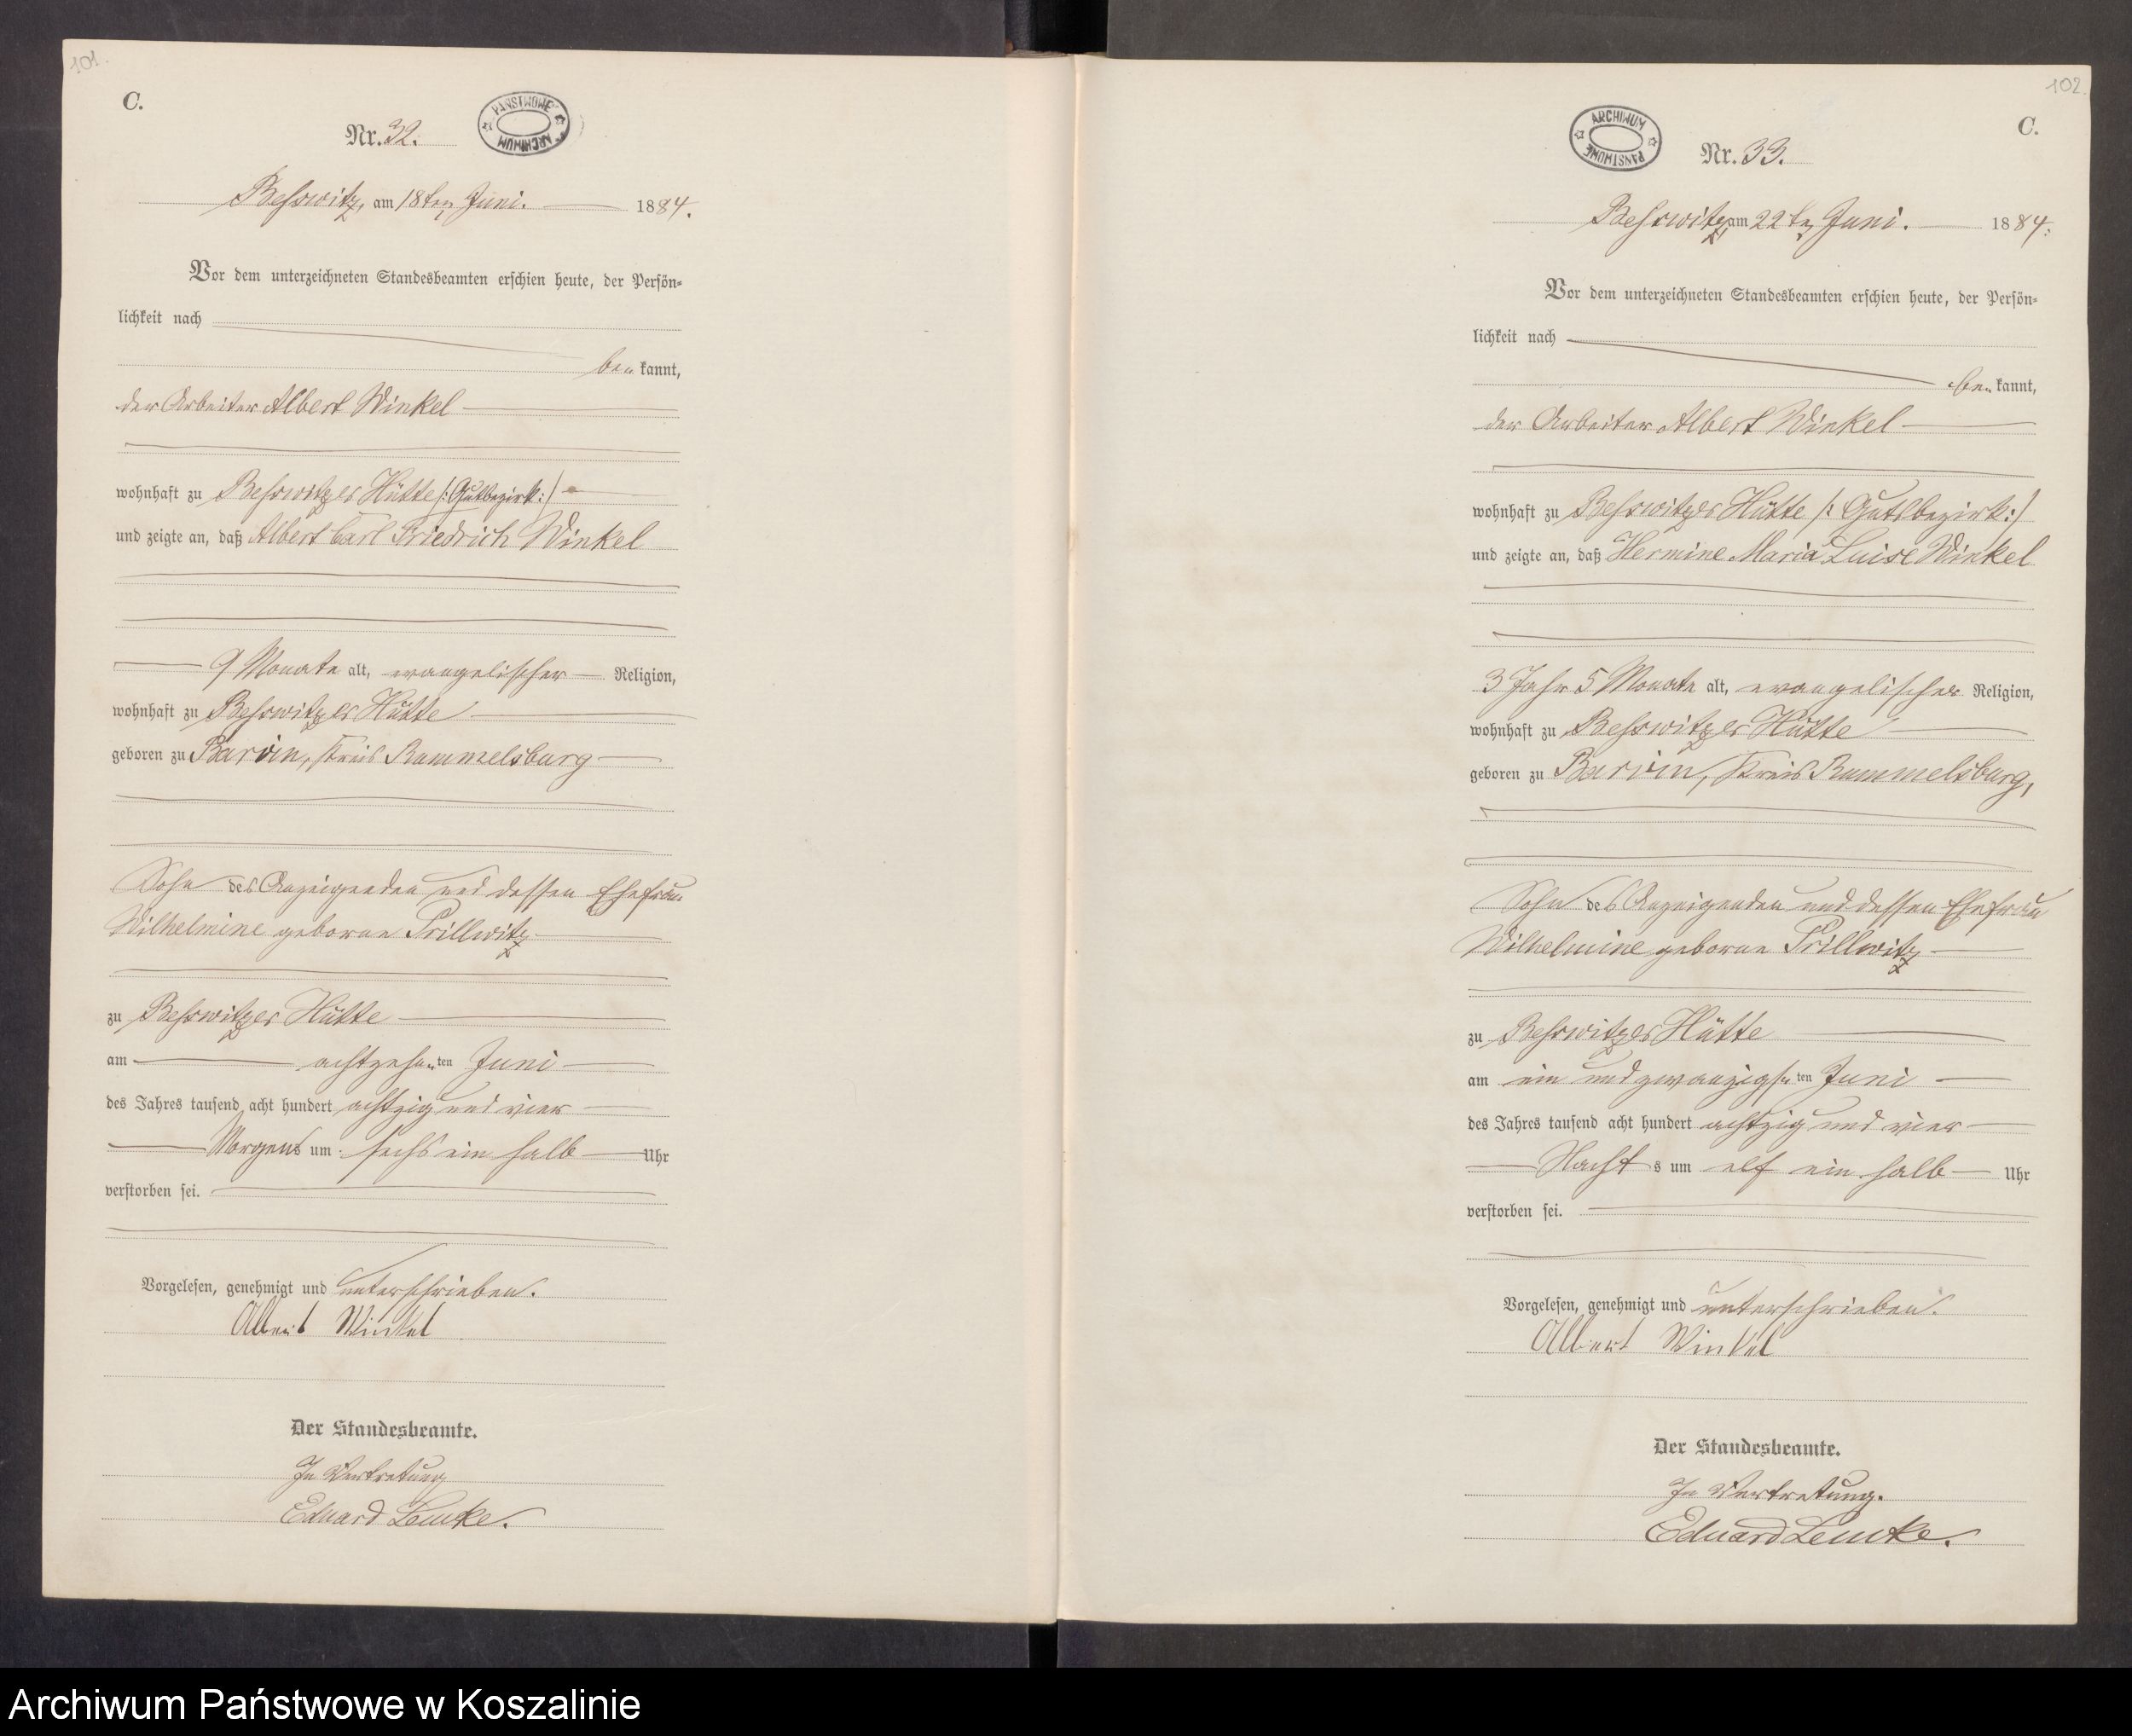 101.
C.
Nr. 32.
PAŃSTWOWE ARCHIWUM
Beßwitz, am 18ten Juni. 1884.
Vor dem unterzeichneten Standesbeamten erschien heute, der Persön-
lichkeit nach
be kannt,
der Arbeiter Albert Winkel
wohnhaft zu Beßwitzer Hütte /: Gutbezirk :/
und zeigte an, daß Albert Carl Friedrich Winkel
9 Monate alt, evangelischer Religion,
wohnhaft zu Beßwitzer Hütte
geboren zu Barvin, Kreis Rummelsburg
Sohn des Anzeigenden und dessen Ehefrau
Wilhelmine geborne Prillwitz
zu Beßwitzer Hütte
am achtzehnten Juni
des Jahres tausend acht hundert achtzig und vier
Morgens um sechs ein halb Uhr
verstorben sei.
Vorgelesen, genehmigt und unterschrieben.
Albert Winkel
Der Standesbeamte.
In Vertretung
Eduard Lemke.
102.
C.
ARCHIWUM PAŃSTWOWE
Nr. 33.
Beßwitz am 22ten Juni. 1884.
Vor dem unterzeichneten Standesbeamten erschien heute, der Persön-
lichkeit nach
be kannt,
der Arbeiter Albert Winkel
wohnhaft zu Beßwitzer Hütte /: Gutsbezirk :/
und zeigte an, daß Hermine Maria Luise Winkel
3 Jahr 5 Monate alt, evangelischer Religion,
wohnhaft zu Beßwitzer Hütte
geboren zu Barvin, Kreis Rummelsburg,
Sohn des Anzeigenden und dessen Ehefrau
Wilhelmine geborne Prillwitz
zu Beßwitzer Hütte
am ein und zwanzigsten Juni
des Jahres tausend acht hundert achtzig und vier
Nacht s um elf ein halb Uhr
verstorben sei.
Vorgelesen, genehmigt und unterschrieben.
Albert Winkel
Der Standesbeamte.
In Vertretung.
Eduard Lemke.
Archiwum Państwowe w Koszalinie